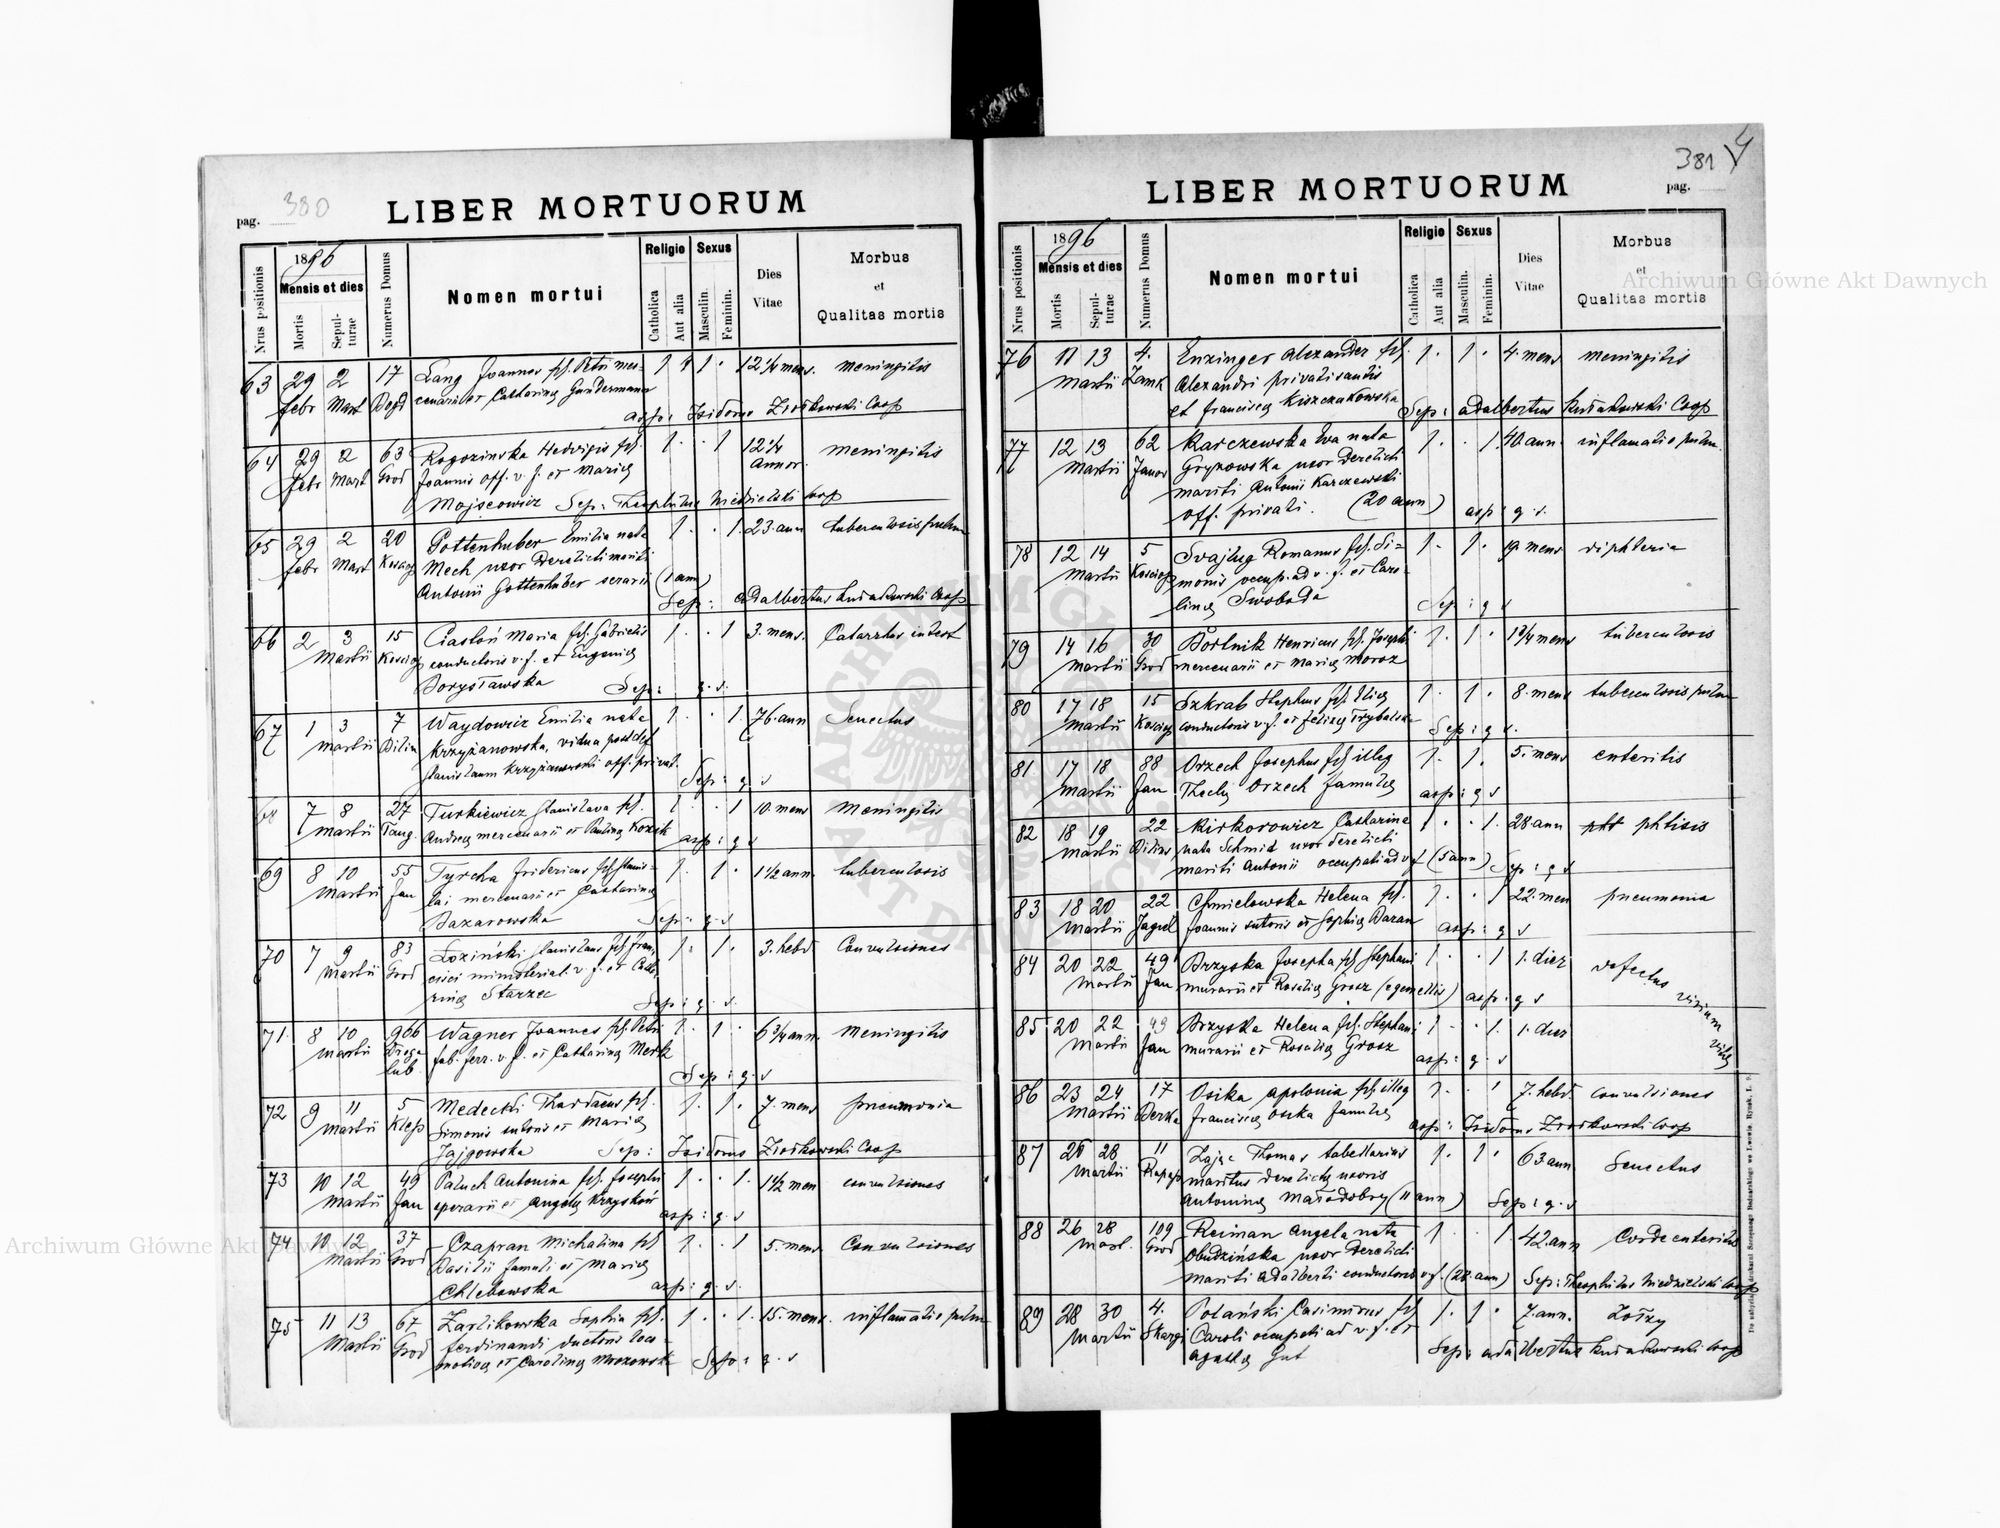 380
pag.
LIBER MORTUORUM
Nrus positionis
1896
Mensis et dies
Mortis
Sepulturae
Numerus Domus
Nomen mortui
Religio
Catholica
Aut alia
Sexus
Masculin.
Feminin.
Dies
Vitae
Morbus
et
Qualitas mortis
63 29 2 17 Lang Joannes fil. Petri mer- 12 1/4 mens. meningitis
febr Mart cenarii et Catharina Gundermann
asp: Isidorus Ziołkowski Coop
64 29 2 63 Rogozinska Hedvigis fil. 12 1/4 meningitis
febr Mart Grod Joannis off. v. f. et Maria annor.
Mojseowicz Sep: Theophilus Niedzielski Coop
65 29 2 20 Gottenhuber Emilia nata 1. . 1. 23 ann tuberculosis pulm
febr Mart Mech uxor derelicti mariti
Antonii Gottenhuber serarii (1 ann)
Sep: adalbertus Kułakowski Coop
66 2 3 15 Ciastoń Maria fil. Gabrielis 1. . 1 3. mens. Catarrhus intest
Martii conductoris v. f. et Eugenia
Borysławska Sep: q. s.
67 1 3 7 Waydowicz Emilia nata 1. . 1. 76 ann Senectus
Martii Krzyżanowska, vidua post def
Stanislaum Krzyżanowski off. privat.
Sep: q s
7 8 27 Turkiewicz Stanislava fil. 1 . 1 10 mens Meningitis
Martii Andrea mercenarii et Paulina Kozik asp: q s
69 8 10 55 Tyrcha Fridericus fil Stanis- 1. 1. 1 1/2 ann. tuberculosis
Martii Jan lai mercenarii et Catharina
Bazarowska Sep: q. s
70 7 9 83 Łoziński Stanislaus fil Fran- 1. 1. 3. hebd Convulsiones
Martii Grod cisci ministerial. v. f. et Catha-
rina Starzec Sep: q. s.
71. 8 10 966 Wagner Joannes fil. Petri 1. 1 . 6 3/4 ann. Meningitis
Martii Droga fab. ferr. v. f. et Catharina Merk
lub. Sep: q. s
72 9 11 5 Medecki Thaddaeus fil. 1. 1. 7. mens pneumonia
Martii Klep Simonis sutoris et Maria
Jajgowska Sep: Isidorus Ziołkowski Coop
73 10 12 49 Paluch Antonina fil. Josephi 1 . . 1. 1 1/2 men convulsiones
Martii Jan operarii et Angela Krzyskoń asp: q. s
74 10 12 37 Czapran Michalina fil 1. . 1 5. mens Convulsiones
Martii Grod Basilii famuli et Maria
Chlebowska asp: q. s.
75 11 13 67 Zarlikowska Sophia fil. 1 . . 1. 15. mens. inflamatio pulm
Martii Grod Ferdinandi ductoris loco-
motiva et Carolina Mrozowsk Sep: q. s
381
pag.
LIBER MORTUORUM
Nrus positionis
1896
Mensis et dies
Mortis
Sepulturae
Numerus Domus
Nomen mortui
Religio
Catholica
Aut alia
Sexus
Masculin.
Feminin.
Dies
Vitae
Morbus
et
Qualitas mortis
76 11 13 4. Enzinger Alexander fil. 1. 1. 4. mens meningitis
Martii Zamk Alexandri privatisantis
et Francisca Kiszczakowska Sep: adalbertus Kułakowski Coop
77 12 13 62 Karczewska Eva nata 1. . 1 40 ann. inflamatio pulm.
Martii Janov Gryzowska uxor derelicti
mariti Antonii Karczewski
off. privati. (20 ann) asp: q. s.
78 12 14 5 Svajlug Romanus fil. Si- 1. 1. 9. mens diphteria
Martii monis occup. ad v. f. et Caro-
lina Swoboda Sep: q s
79 14 16 30 Bortnik Henricus fil. Josephi 1. 1. 1 3/4 mens tuberculosis
Martii Grod mercenarii et Maria Moroz
80 17 18 15 Szkrab Stephus fil. Elia 1. 1. 8. mens tuberculosis pulm
Martii conductoris v. f. et Felixa Trybalska Sep: q s.
81 17 18 88 Orzech Josephus fil illeg 1. 1. 5. mens enteritis
Martii Jan Thecla Orzech famula asp: q s
82 18 19 22 Mirkorowicz Catharina 1 . . 1. 28 ann pht phtisis
Martii nata Schmid uxor derelicti
mariti Antonii occupati ad v f (5 ann) Sep: q s
83 18 20 22 Chmielowska Helena fil. 1. . 1 22. men pneumonia
Martii Jagiel Joannis sutoris et Sophia Baran asp: q s
84 20 22 49 Brzyska Josepha fil Stephani 1 . 1 1. dies defectus
Martii Jan murarii et Rosalia Grosz (e gemellis) asp: q s virium
85 20 22 49 Brzyska Helena fil. Stephani 1 . . 1. 1. dies
Martii Jan murarii et Rosalia Grosz vitae
asp: q. s
86 23 24 17 Osika Apolonia fil illeg 1. . 1 7. hebd. convulsiones
Martii Francisca Osika famula
asp: Isidorus Ziołkowski Coop
87 26 28 11 Zając Thomas tabellarius 1. 1. 63 ann Senectus
Martii maritus derelicta uxoris
Antonina Małodobry (11 ann) Sep: q. s
88 26 28 109 Reiman Angela nata 1 . 1 42. ann Cordo enteritis
Mart. Grod Obudzińska uxor derelicti
mariti adalberti conductoris v. f. (22 ann) Sep: Theophilus Niedzielski Coop
89 28 30 4. Polański Casimirus fil 1. 1. 7. ann.
Martii Skargi Caroli occupati ad v. f. et
Agatha Gut Sep: adalbertus Kułakowski Coop
Archiwum Główne Akt Dawnych
Archiwum Główne Akt Dawnych